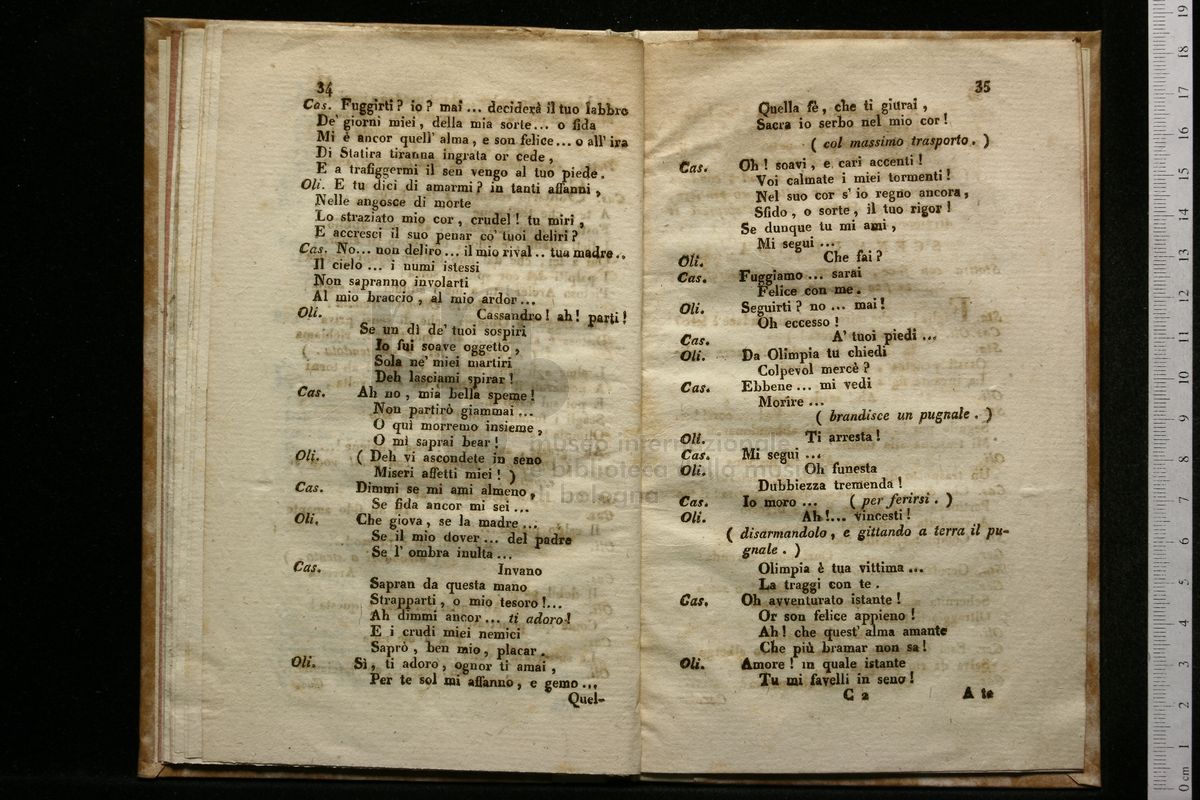 34
Cas. Fuggirti? io? mai ... deciderà il tuo labbro
De' giorni miei, della mia sorte... o fida
Mi è ancor quell' alma, e son felice... o all' ira
Di Statira tiranna ingrata or cede,
E a trafiggermi il sen vengo al tuo piede.
Oli. E tu dici di amarmi? in tanti affanni,
Nelle angosce di morte
Lo straziato mio cor, crudel! tu miri,
E accresci il suo penar co' tuoi deliri?
Cas. No... non deliro... il mio rival.. tua madre..
Il cielo ... i numi istessi
Non sapranno involarti
Al mio braccio, al mio ardor...
Oli. Cassandro! ah! parti!
Se un dì de' tuoi sospiri
Io fui soave oggetto,
Sola ne' miei martiri
Deh lasciami spirar!
Cas. Ah no, mia bella speme!
Non partirò giammai ...
O quì morremo insieme,
O mi saprai bear!
Oli. ( Deh vi ascondete in seno
Miseri affetti miei! )
Cas. Dimmi se mi ami almeno,
Se fida ancor mi sei ...
Oli. Che giova, se la madre ...
Se il mio dover ... del padre
Se l' ombra inulta ...
Cas. Invano
Sapran da questa mano
Strapparti, o mio tesoro!...
Ah dimmi ancor ... ti adoro!
E i crudi miei nemici
Saprò, ben mio, placar.
Oli. Sì, ti adoro, ognor ti amai,
Per te sol mi affanno, e gemo ...
Quel-
35
Quella fè, che ti giurai,
Sacra io serbo nel mio cor!
( col massimo trasporto. )
Cas. Oh! soavi, e cari accenti!
Voi calmate i miei tormenti!
Nel suo cor s' io regno ancora,
Sfido, o sorte, il tuo rigor!
Se dunque tu mi ami,
Mi segui ...
Oli. Che fai?
Cas. Fuggiamo ... sarai
Felice con me.
Oli. Seguirti? no ... mai!
Oh eccesso!
Cas. A' tuoi piedi ...
Oli. Da Olimpia tu chiedi
Colpevol mercè?
Cas. Ebbene ... mi vedi
Morire ...
( brandisce un pugnale. )
Oli. Ti arresta!
Cas. Mi segui ...
Oli. Oh funesta
Dubbiezza tremenda!
Cas. Io moro ... ( per ferirsi. )
Oli. Ah!... vincesti!
( disarmandolo, e gittando a terra il pu-
gnale. )
Olimpia è tua vittima ...
La traggi con te.
Cas. Oh avventurato istante!
Or son felice appieno!
Ah! che quest' alma amante
Che più bramar non sa!
Oli. Amore! in quale istante
Tu mi favelli in seno!
C 2 A te
museo internazionale
biblioteca della musica
di bologna